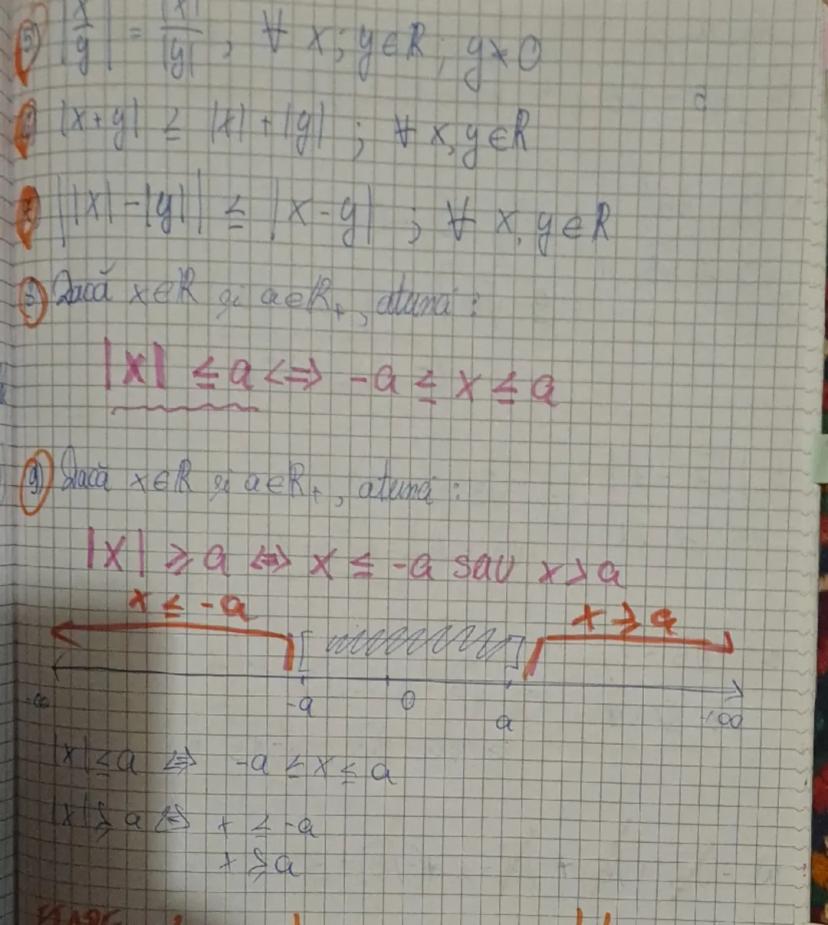 5) |x/y| = |x|/|y|, ∀ x; y∈R; y≠0
6) |x+y| ≤ |x|+|y| ; ∀ x, y∈R
7) ||x|-|y|| ≤ |x-y| ; ∀ x, y∈R
8) Dacă x∈R și a∈R₊, atunci :
|x| ≤ a <=> -a ≤ x ≤ a
9) Dacă x∈R și a∈R₊, atunci :
|x| ≥ a <=> x ≤ -a sau x ≥ a
x ≤ -a x ≥ a
-∞ -a 0 a +∞
|x| ≤ a <=> -a ≤ x ≤ a
|x| ≥ a <=> x ≤ -a
x ≥ a